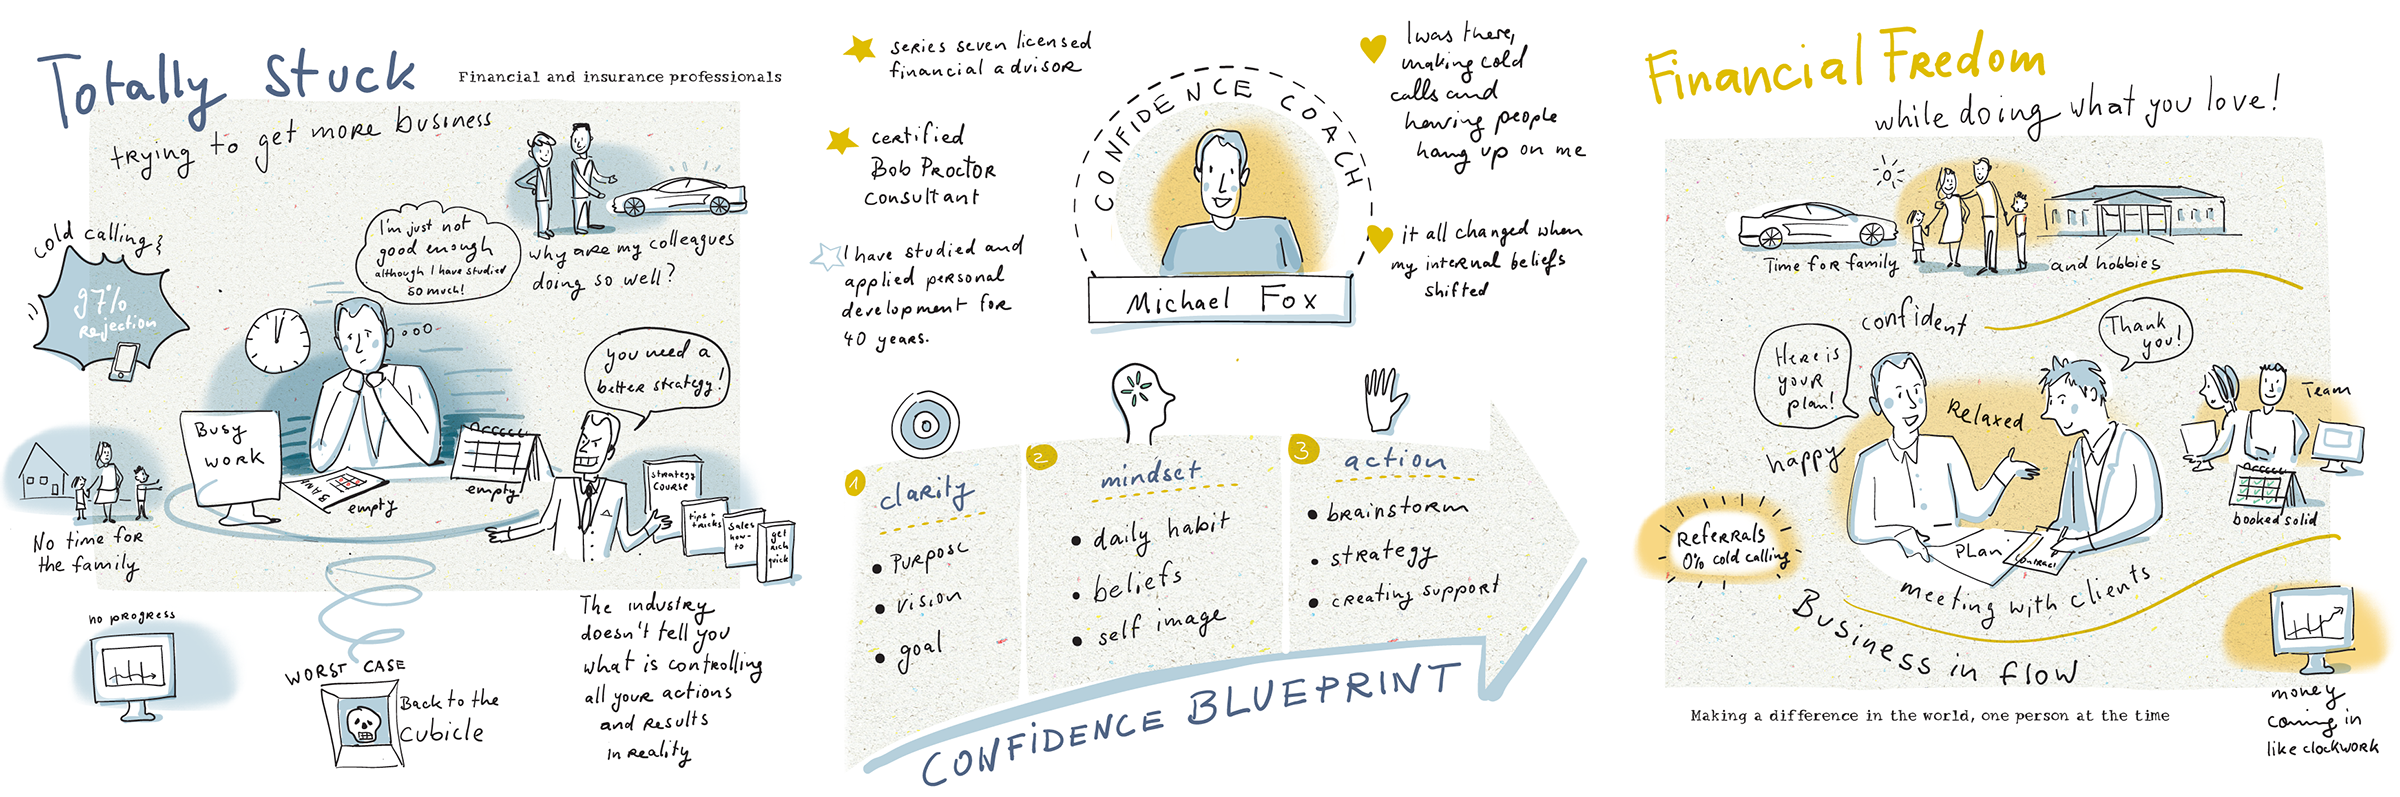 Totally Stuck
Financial and insurance professionals
trying to get more business
cold calling
97%
Rejection
I'm just not
good enough
although I have studied
so much!
why are my colleagues
doing so well?
you need a
better strategy!
Busy
work
BANK
empty
empty
strategy
course
tips +
tricks
sales
how-
to
get
rich
quick
No time for
the family
no progress
WORST CASE
Back to the
cubicle
The industry
doesn't tell you
what is controlling
all your actions
and results
in reality
series seven licensed
financial advisor
certified
Bob Proctor
consultant
I have studied and
applied personal
development for
40 years.
CONFIDENCE COACH
Michael Fox
I was there,
making cold
calls and
having people
hang up on me
it all changed when
my internal beliefs
shifted
1
clarity
Purpose
vision
goal
2
mindset
daily habit
beliefs
self image
3
action
brainstorm
strategy
creating support
CONFIDENCE BLUEPRINT
Financial Fredom
while doing what you love!
Time for family
and hobbies
confident
Here is
your
plan!
Thank
you!
happy
Relaxed
Team
booked solid
Referrals
0% cold calling
PLAN
contract
meeting with clients
Business in flow
money
coming in
like clockwork
Making a difference in the world, one person at the time